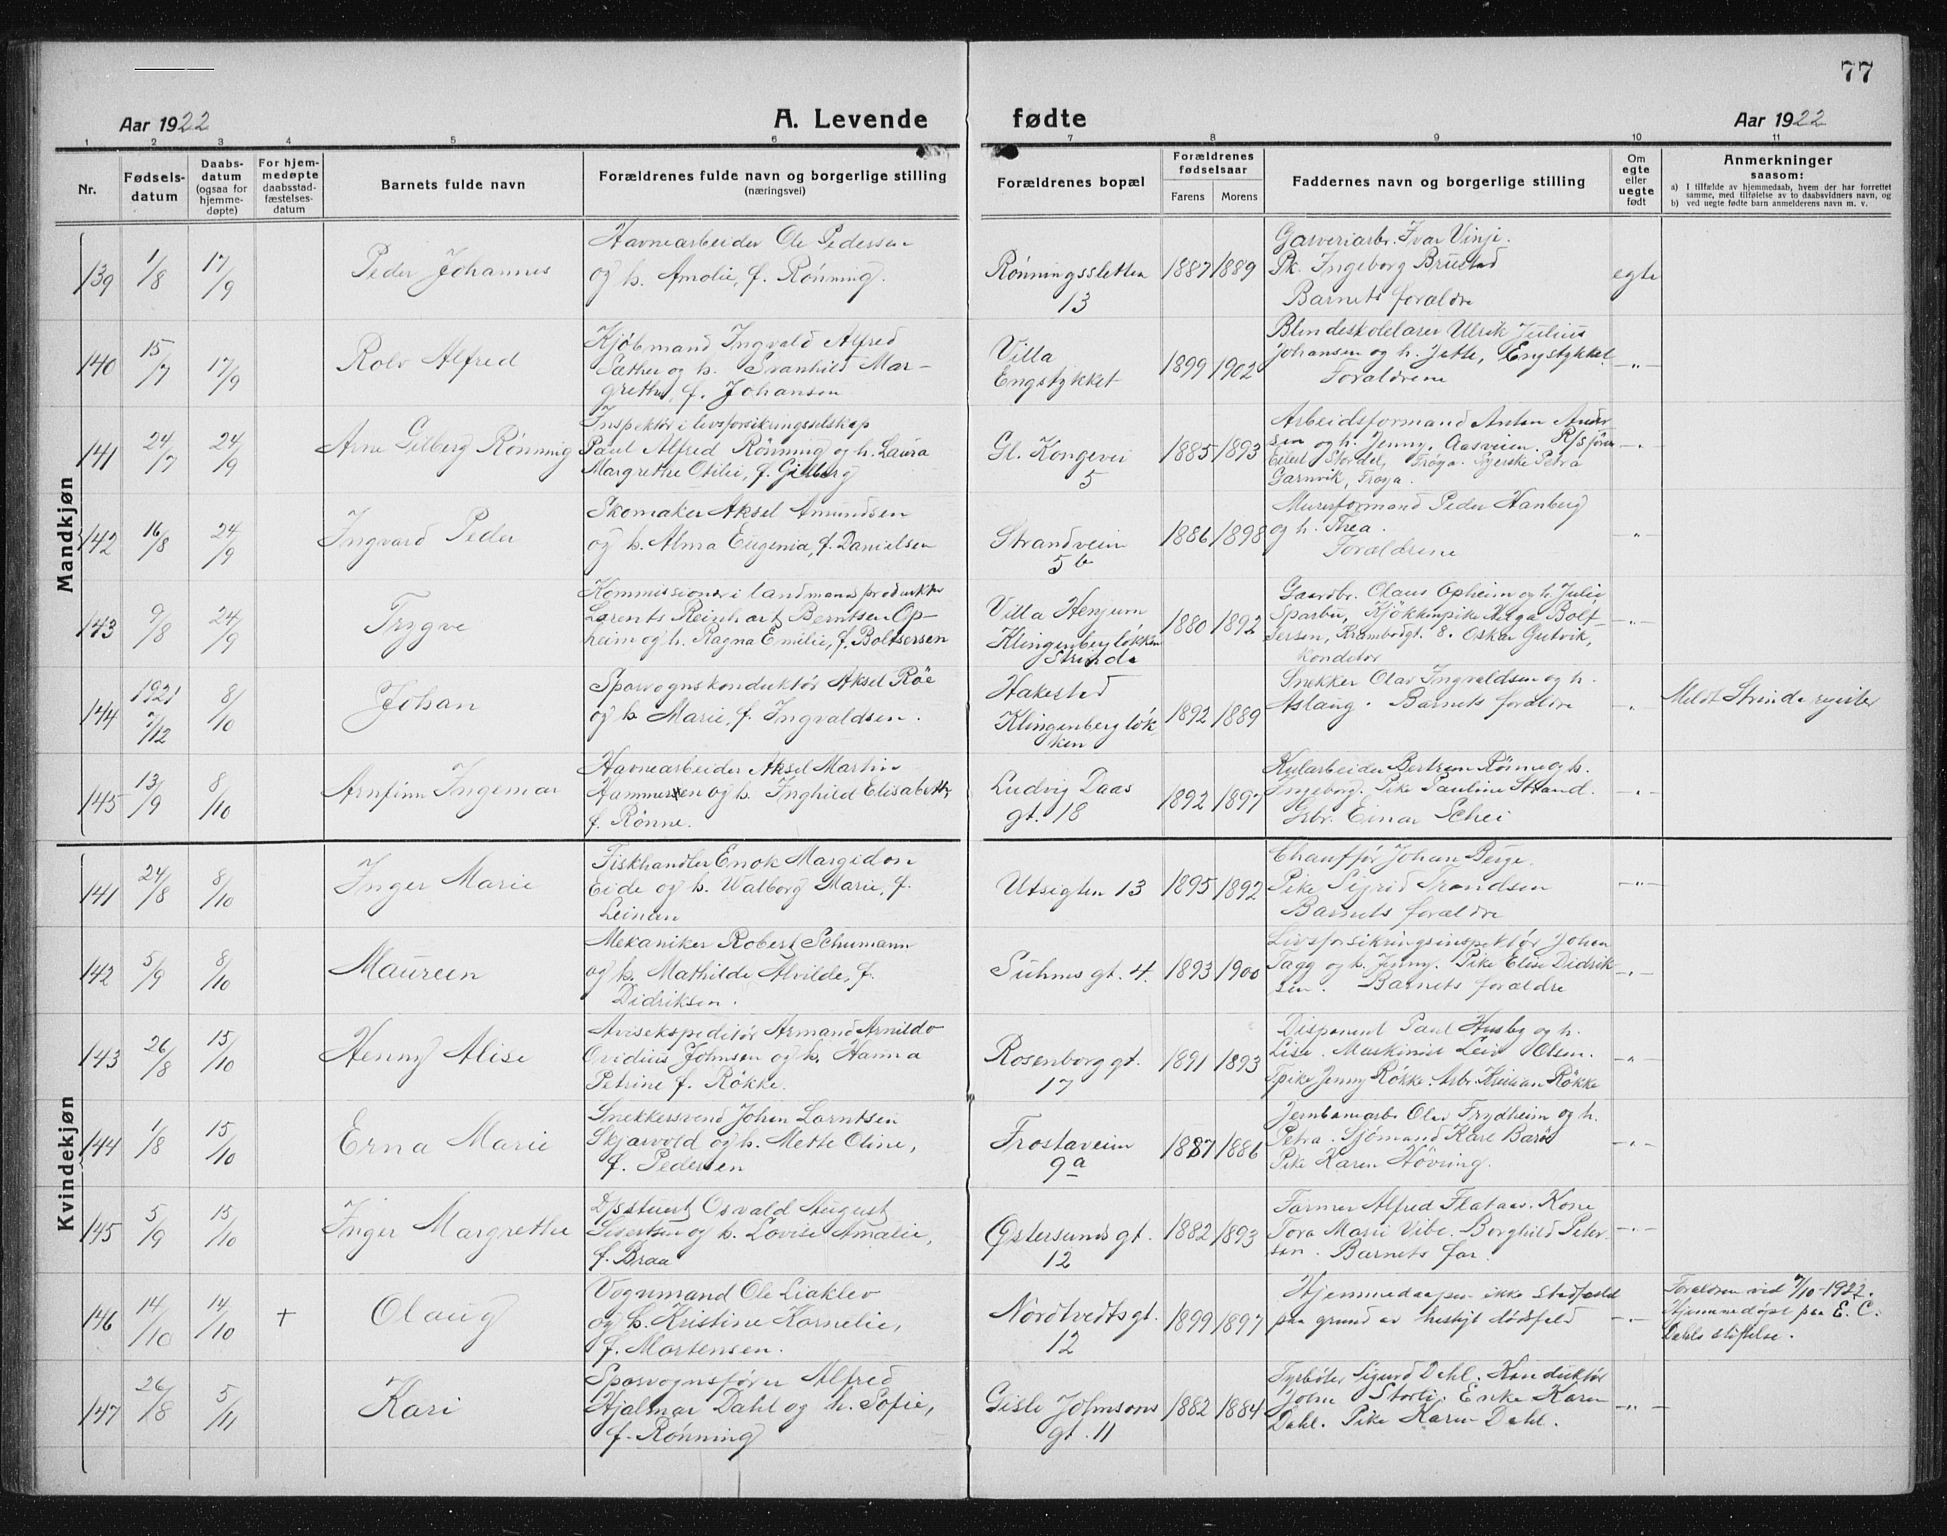 77
Aar 1922 A. Levende fødte Aar 1922
1 2 3 4 5 6 7 8 9 10 11
Nr. Fødselsdatum Daabsdatum (ogsaa for hjemmedøpte) For hjemmedøpte daabsstadfæstelsesdatum Barnets fulde navn Forældrenes fulde navn og borgerlige stilling (næringsvei) Forældrenes bopæl Forældrenes fødselsaar Farens Morens Faddernes navn og borgerlige stilling Om egte eller uegte født Anmerkninger saasom:
a) I tilfælde av hjemmedaab, hvem der har forrettet samme, med tilføielse av to daabsvidners navn, og
b) ved uegte fødte barn anmelderens navn m. v.
Mandkjøn
139 1/8 17/9 Peder Johannes
Havnearbeider Ole Pedersen
og h. Amalie, f. Rönning.
Rönningssletten
13
1887 1889
Gasverksarbr. Ivar Vinje.
Pk. Ingeborg Brustad
Barnets forældre
egte
140 15/7 17/9 Rolv Alfred
Kjöbmand Ingvald Alfred
Sæther og h. Svanhild Mar-
grethe, f. Johansen
Villa
Engstykket
1899 1902
Blindeskolelærer Ulrik Julius
Johansen og h. Jette, Engstykket
Forældrene
-"-
141 24/7 24/9 Arne Gilberg Rönning
Inspektör i livsforsikringsselskap
Paul Alfred Rönning og h. Laura
Margrethe Otilie, f. Gilberg
Gl. Kongevei
5
1885 1893
Arbeidsformand Anton Ander-
sen og h. Jenny, Aasveien.
Eilert Stordal, Tröga. Syerske Petra
Garnvik, Tröga.
-"-
142 16/8 24/9 Ingvard Peder
Skomaker Aksel Amundsen
og h. Alma Eugenia, f. Danielsen
Strandveien
5b
1886 1898
Murerformand Peder Hanberg
og h. Thea.
Forældrene
"
143 9/8 24/9 Trygve
Kommissionær i landmandsprodukter
Lorents Reinhart Berntsen Op-
heim og h. Ragna Emilie, f. Boltsersen
Villa Henjum
Klingenbergløkken
Strinda
1880 1892
Gaardbr. Olaus Opheim og h. Julie
Sparbu, Kjøkkenpike Helga Bolt-
sersen, Krambodgt. 8. Oskar Gutvik,
konditor
-"-
144 1921 7/12 8/10 Johan
Sporvognskonduktör Aksel Röe
og h. Marie, f. Ingvaldsen.
Hakestad
Klingenbergløk
ken
1892 1889
Snekker Olav Ingvaldsen og h.
Aslaug. Barnets forældre
"
Meldt Strinda register
145 13/9 8/10 Arnfinn Ingemar
Havnearbeider Aksel Martin
Hammersen og h. Inghild Elisabeth,
f. Rönne.
Ludvig Daas
gt. 18
1892 1897
Kularbeider Bertrem Rönne og h.
Ingeborg. Pike Pauline Strand.
Gsbr. Einar Schei
-"-
Kvindekjøn
141 24/8 8/10 Inger Marie
Fiskhandler Enok Margidon
Eide og h. Walborg Marie, f.
Leinan
Utsigten 13
1895 1892
Chauffør Johan Berge.
Pike Sigrid Trondsen
Barnets forældre
-"-
142 5/9 8/10 Maureen
Mekaniker Robert Schumann
og h. Mathilde Alvilde, f.
Didriksen.
Suhms gt. 4.
1893 1900
Livsforsikringsinspektör Johan
Tagg og h. Jenny. Pike Elise Didrik
sen. Barnets forældre
-"-
143 26/8 15/10 Henny Alise
Avisekspeditör Armand Arnildo
Ovidius Johnsen og h. Hanna
Petrine f. Røkke.
Rosenborg gt.
17
1891 1893
Disponent Paul Husby og h.
Lise. Maskinist Leiv Olsen.
Tpike Jenny Røkke. Arbr. Kristian Røkke
"
144 1/8 15/10 Erna Marie
Snekkersvend Johan Lorntsen
Skjærvold og h. Mette Oline,
f. Pedersen
Frostaveien
9a
1887 1886
Jernbanearbr Olav Frydheim og h.
Petra. Sjömand Karl
Pike Karen Hövring.
-"-
145 5/9 15/10 Inger Margrethe
Dpstuert Osvald August
Sivertsen og h. Lovise Amalie,
f. Braa
Østersunds gt.
12
1882 1893
Farmer Alfred Flataas. Kone
Tora Marie Vibe. Borghild Peter-
sen. Barnets far.
-"-
146 14/10 14/10 + Olaug
Vognmand Ole Liaklev
og h. Kristine Kornelie,
f. Mortensen.
Nordtvedts gt.
12
1899 1897
Hjemmedaapen ikke stadfæstet
paa grund av hastigt dödsfald
-"-
Forældrene vid 7/10-1922.
Hjemmedöpt paa E. C.
Dahls stiftelse.
147 26/8 5/11 Kari
Sporvognsfører Alfred
Hjalmar Dahl og h. Sofie,
f. Rønning
Gisle Johnsons
gt. 11
1882 1884
Fyrböter Sigurd Dahl. Konduktör
Johan Storli. Enke Karen
Dahl. Pike Karen Dahl.
-"-